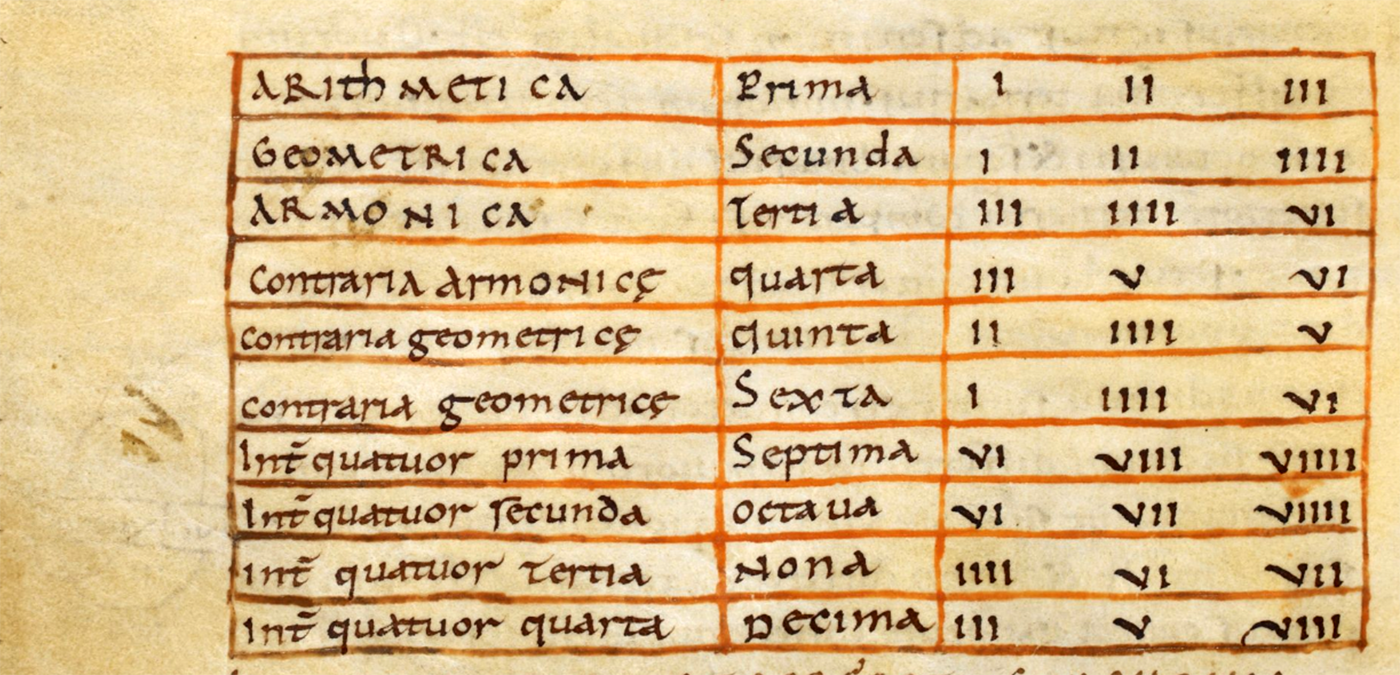 ARithMETICA Prima I II III
GEOMETRICA Secunda I II IIII
ARMONICA Tertia III IIII VI
Contraria armonicę quarta III V VI
contraria geometricę quinta II IIII V
contraria geometricę Sexta I IIII VI
Int̄ quatuor prima Septima VI VIII VIIII
Int̄ quatuor secunda octaua VI VII VIIII
Int̄ quatuor tertia Nona IIII VI VII
Int̄ quatuor quarta Decima III V VIII